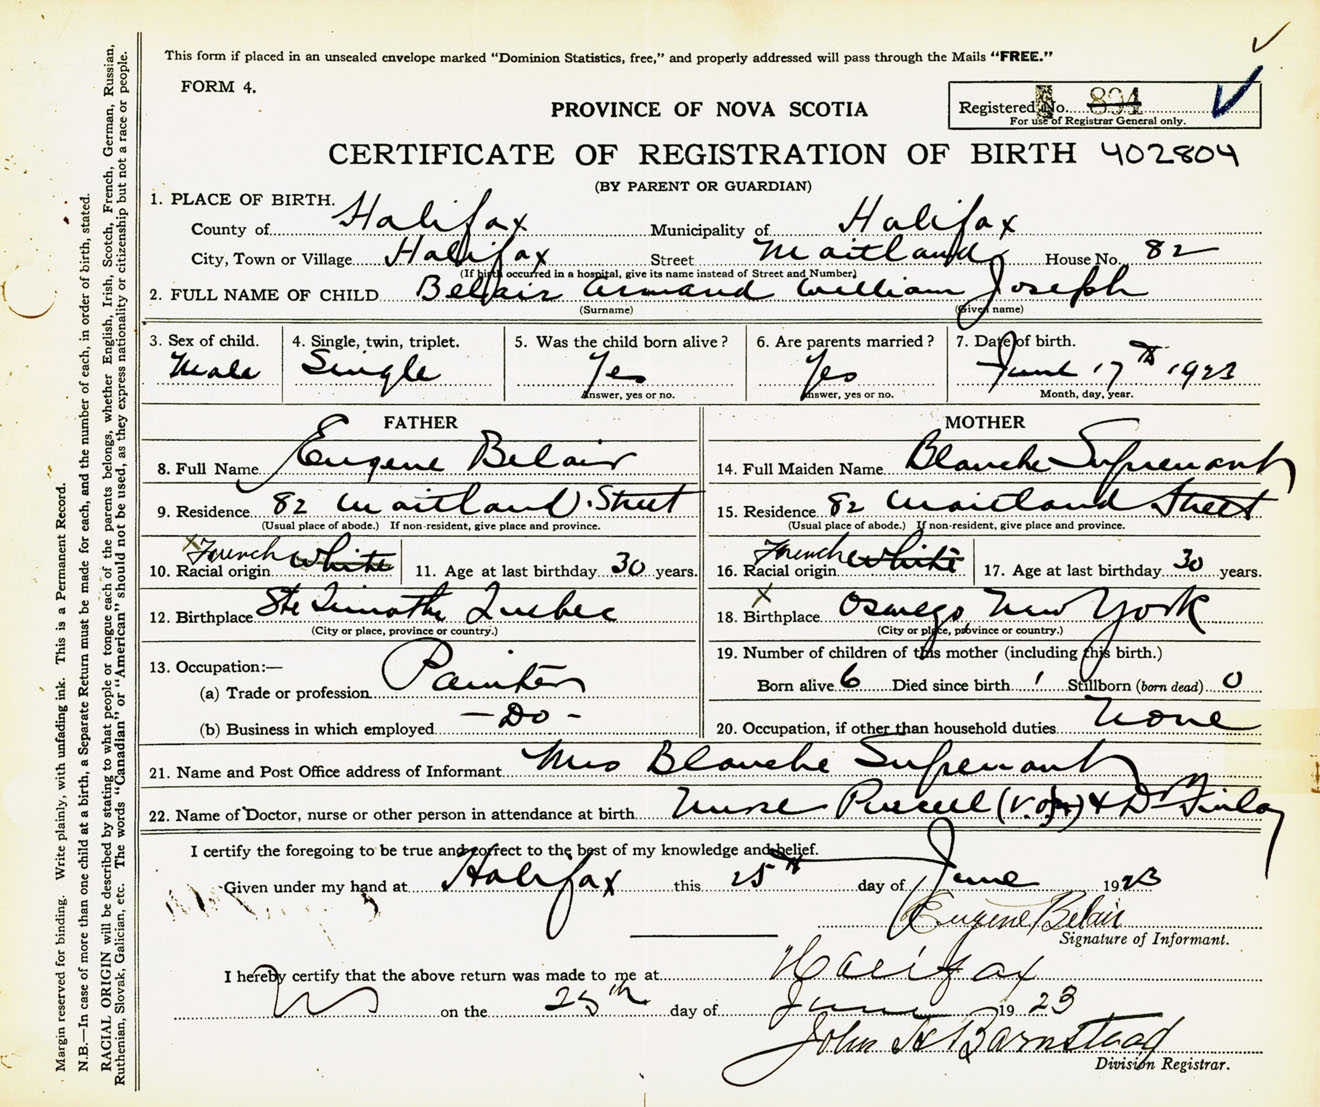 This form if placed in an unsealed envelope marked "Dominion Statistics, free," and properly addressed will pass through the Mails "FREE."
FORM 4.
PROVINCE OF NOVA SCOTIA
Registered No. 894
For use of Registrar General only.
CERTIFICATE OF REGISTRATION OF BIRTH 402804
(BY PARENT OR GUARDIAN)
1. PLACE OF BIRTH.
County of Halifax Municipality of Halifax
City, Town or Village Halifax Street Maitland House No. 82
(If birth occurred in a hospital, give its name instead of Street and Number)
2. FULL NAME OF CHILD Belair Armand William Joseph
(Surname) (Given name)
3. Sex of child. 4. Single, twin, triplet. 5. Was the child born alive? 6. Are parents married? 7. Date of birth.
Male Single Yes Yes June 17th 1923
Answer, yes or no. Answer, yes or no. Month, day, year.
FATHER MOTHER
8. Full Name Eugene Belair 14. Full Maiden Name Blanche Suprenant
9. Residence 82 Maitland Street 15. Residence 82 Maitland Street
(Usual place of abode.) If non-resident, give place and province. (Usual place of abode.) If non-resident, give place and province.
10. Racial origin French White 11. Age at last birthday 30 years. 16. Racial origin French White 17. Age at last birthday 30 years.
12. Birthplace Ste Timothe Quebec 18. Birthplace Oswego New York
(City or place, province or country.) (City or place, province or country.)
13. Occupation:— 19. Number of children of this mother (including this birth.)
(a) Trade or profession Painter Born alive 6 Died since birth 1 Stillborn (born dead) 0
(b) Business in which employed - Do - 20. Occupation, if other than household duties None
21. Name and Post Office address of Informant Mrs Blanche Suprenant
22. Name of Doctor, nurse or other person in attendance at birth Nurse Purcell & Dr Finlay
I certify the foregoing to be true and correct to the best of my knowledge and belief.
Given under my hand at Halifax this 25th day of June 1923
Eugene Belair
Signature of Informant.
I hereby certify that the above return was made to me at Halifax
on the 25th day of June 1923
John A Barnstead
Division Registrar.
Margin reserved for binding. Write plainly, with unfading ink. This is a Permanent Record.
N.B.—In case of more than one child at a birth, a Separate Return must be made for each, and the number of each, in order of birth, stated.
RACIAL ORIGIN will be described by stating to what people or tongue each of the parents belongs, whether English, Irish, Scotch, French, German, Russian,
Ruthenian, Slovak, Galician, etc. The words "Canadian" or "American" should not be used, as they express nationality or citizenship but not a race or people.